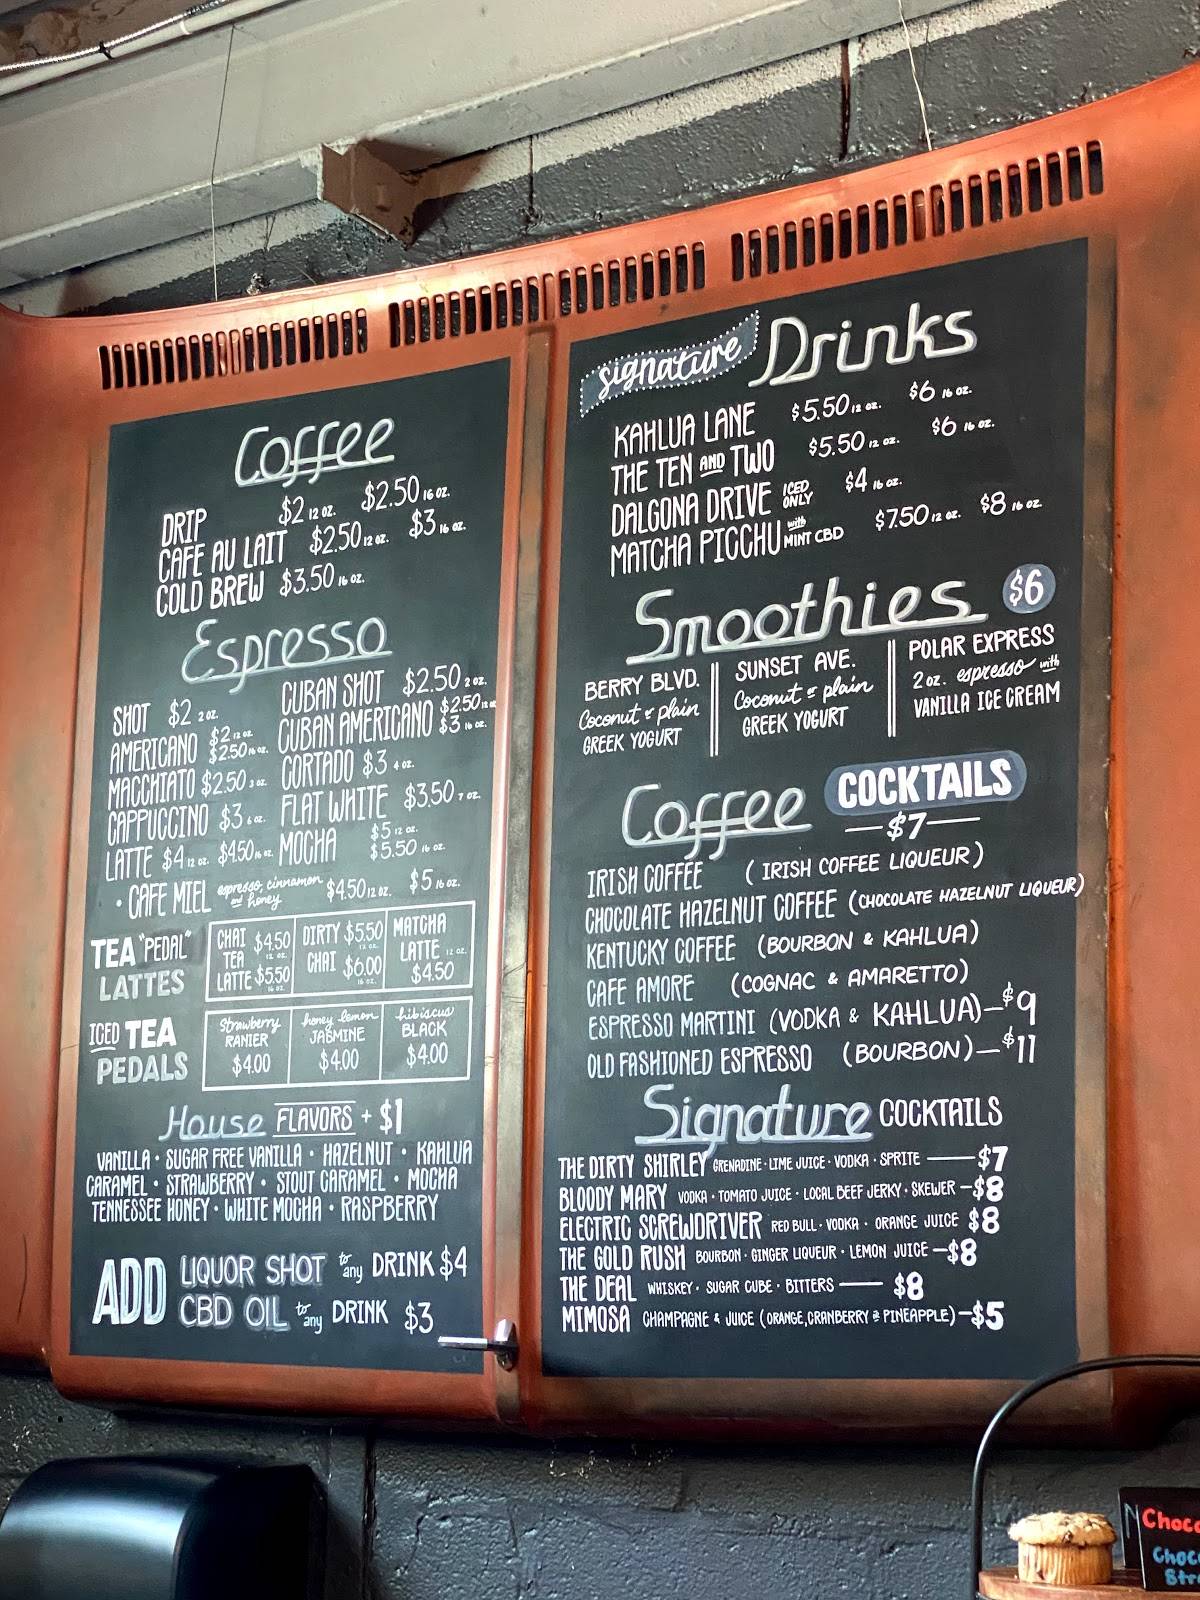 Coffee
DRIP $2 12 OZ. $2.50 16 OZ.
CAFE AU LAIT $2.50 12 OZ. $3 16 OZ.
COLD BREW $3.50 16 OZ.
Espresso
SHOT $2 2 OZ.
AMERICANO $2 12 OZ. $2.50 16 OZ.
MACCHIATO $2.50 3 OZ.
CAPPUCCINO $3 6 OZ.
LATTE $4 12 OZ. $4.50 16 OZ.
CUBAN SHOT $2.50 2 OZ.
CUBAN AMERICANO $2.50 12 OZ. $3 16 OZ.
CORTADO $3 4 OZ.
FLAT WHITE $3.50 7 OZ.
MOCHA $5 12 OZ. $5.50 16 OZ.
• CAFE MIEL espresso, cinnamon and honey $4.50 12 OZ. $5 16 OZ.
TEA "PEDAL" LATTES
CHAI TEA LATTE $4.50 12 OZ. $5.50 16 OZ.
DIRTY CHAI $5.50 12 OZ. $6.00 16 OZ.
MATCHA LATTE 12 OZ. $4.50
ICED TEA PEDALS
Strawberry RANIER $4.00
honey lemon JASMINE $4.00
hibiscus BLACK $4.00
House FLAVORS + $1
VANILLA • SUGAR FREE VANILLA • HAZELNUT • KAHLUA
CARAMEL • STRAWBERRY • STOUT CARAMEL • MOCHA
TENNESSEE HONEY • WHITE MOCHA • RASPBERRY
ADD LIQUOR SHOT to any DRINK $4
CBD OIL to any DRINK $3
signature Drinks
KAHLUA LANE $5.50 12 OZ. $6 16 OZ.
THE TEN AND TWO $5.50 12 OZ. $6 16 OZ.
DALGONA DRIVE ICED ONLY $4 16 OZ.
MATCHA PICCHU with MINT CBD $7.50 12 OZ. $8 16 OZ.
Smoothies $6
BERRY BLVD.
Coconut or plain
GREEK YOGURT
SUNSET AVE.
Coconut or plain
GREEK YOGURT
POLAR EXPRESS
2 oz. espresso with
VANILLA ICE CREAM
Coffee COCKTAILS
—$7—
IRISH COFFEE (IRISH COFFEE LIQUEUR)
CHOCOLATE HAZELNUT COFFEE (CHOCOLATE HAZELNUT LIQUEUR)
KENTUCKY COFFEE (BOURBON & KAHLUA)
CAFE AMORE (COGNAC & AMARETTO)
ESPRESSO MARTINI (VODKA & KAHLUA)—$9
OLD FASHIONED ESPRESSO (BOURBON)—$11
Signature COCKTAILS
THE DIRTY SHIRLEY GRENADINE • LIME JUICE • VODKA • SPRITE —$7
BLOODY MARY VODKA • TOMATO JUICE • LOCAL BEEF JERKY • SKEWER —$8
ELECTRIC SCREWDRIVER RED BULL • VODKA • ORANGE JUICE $8
THE GOLD RUSH BOURBON • GINGER LIQUEUR • LEMON JUICE —$8
THE DEAL WHISKEY • SUGAR CUBE • BITTERS — $8
MIMOSA CHAMPAGNE & JUICE (ORANGE, CRANBERRY or PINEAPPLE) —$5